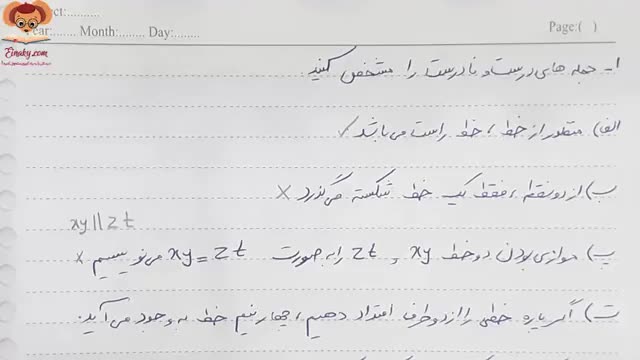 ect:.........
Year:........ Month:........ Day:........ Page:( )
Einaky.com
۱- جمله های درست و نادرست را مشخص کنید.
الف) منظور از خط، خط راست می باشد ✓
ب) از دو نقطه، فقط یک خط شکسته می گذرد ×
xy || zt
پ) موازی بودن دو خط xy و zt را به صورت xy = zt می نویسیم ×
ت) اگر پاره خطی را از دو طرف امتداد دهیم، چهار نیم خط به وجود می آید.